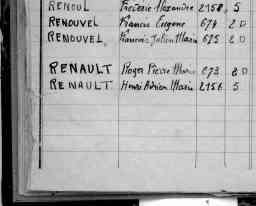 RENOUL Frédéric Alexandre 2158 S
RENOUVEL Francis Eugène 674 2D
RENOUVEL Francois Julien Marie 675 2D
RENAULT Roger Pierre Marie 673 2D
RENAULT Henri Adrien Marie 2156 S